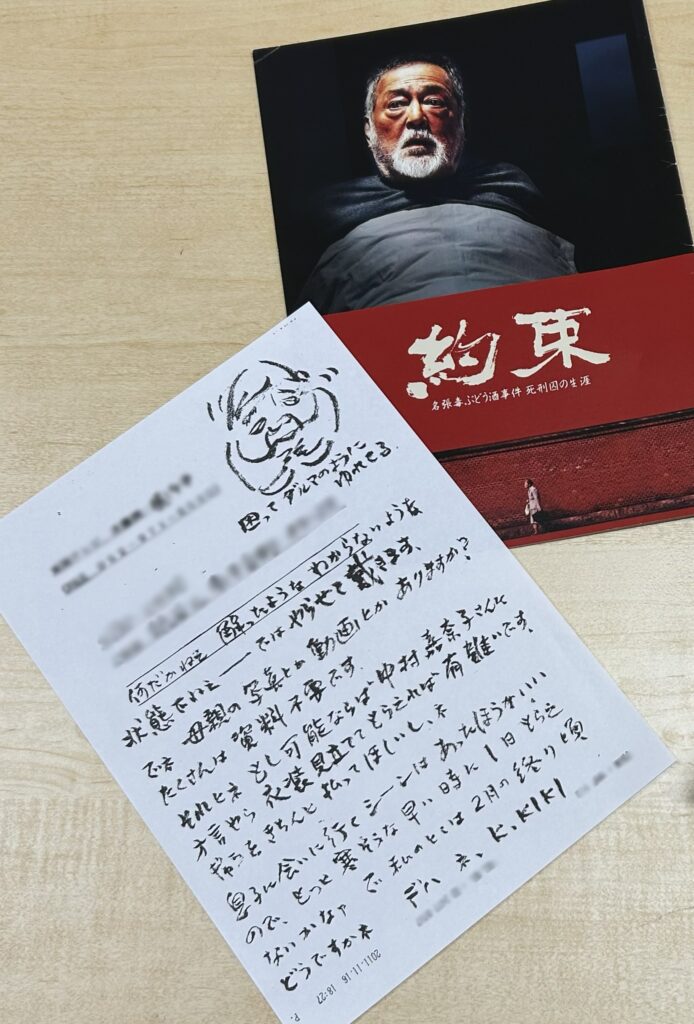 約束
名張毒ぶどう酒事件 死刑囚の生涯
困ってダルマのように
ゆれてる
何だかねェ 解ったような わからないような
状態でねェ —— ではやらせて戴きます、
でネ 母親の写真とか動画とかありますか?
たくさんは資料不要です。
それとネ もし可能ならば 中村嘉奈子さんに
方言やら衣装見立ててもらえれば有難いです、
をきちんと払ってほしいし、ネ
息子に会いに行くシーンはあったほうがいい
ので、もっと寒そうな早い時に1日とらえ
ないかなァ で 私のとこは2月の終り頃
どうですかネ デハネ、K.KIKI
2011-11-16 18:27 P.